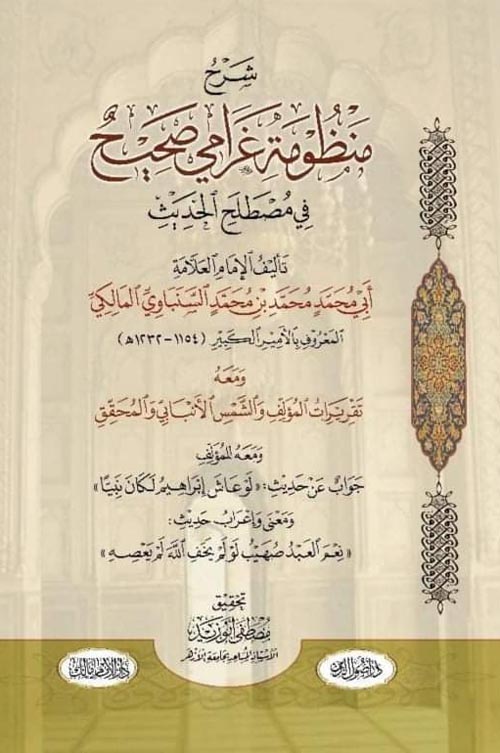 شَرْحُ
مَنْظُومَةِ غَرَامِي صَحِيحٌ
فِي مُصْطَلَحِ الْحَدِيثِ
تَأْلِيفُ الْإِمَامِ الْعَلَّامَةِ
أَبِي مُحَمَّدٍ مُحَمَّدِ بْنِ مُحَمَّدٍ السَّنَبَاوِيِّ الْمَالِكِيِّ
الْمَعْرُوفِ بِالْأَمِيرِ الْكَبِيرِ (١١٥٤-١٢٣٢هـ)
وَمَعَهُ
تَقْرِيرَاتُ الْمُؤَلِّفِ وَالشَّمْسِ الْأَنْبَابِيِّ وَالْمُحَقِّقِ
وَمَعَهُ لِلْمُؤَلِّفِ
جَوَابٌ عَنْ حَدِيثِ: «لَوْ عَاشَ إِبْرَاهِيمُ لَكَانَ نَبِيًّا»
وَمَعْنَى وَإِعْرَابُ حَدِيثِ:
«نِعْمَ الْعَبْدُ صُهَيْبٌ لَوْ لَمْ يَخَفِ اللَّهَ لَمْ يَعْصِهِ»
تحقيق
مصطفى أبو زيد
الأستاذ المساعد بجامعة الأزهر
دار أصول الدين
دار الإمام مالك